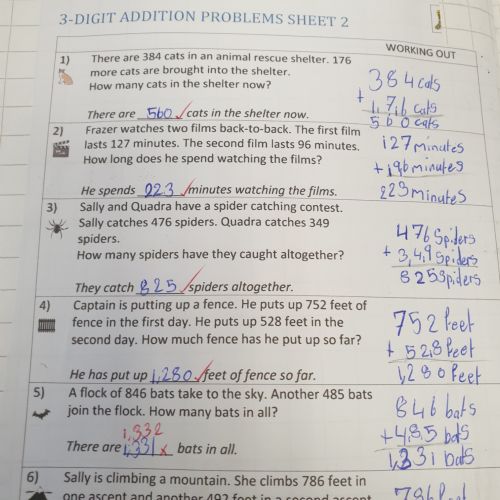 3-DIGIT ADDITION PROBLEMS SHEET 2
WORKING OUT
1) There are 384 cats in an animal rescue shelter. 176
more cats are brought into the shelter.
How many cats in the shelter now?
There are 560 cats in the shelter now.
384 cats
+
176 cats
560 cats
2) Frazer watches two films back-to-back. The first film
lasts 127 minutes. The second film lasts 96 minutes.
How long does he spend watching the films?
He spends 223 minutes watching the films.
127 minutes
+196 minutes
223 minutes
3) Sally and Quadra have a spider catching contest.
Sally catches 476 spiders. Quadra catches 349
spiders.
How many spiders have they caught altogether?
They catch 825 spiders altogether.
476 Spiders
+ 3,4,9 Spiders
825 Spiders
4) Captain is putting up a fence. He puts up 752 feet of
fence in the first day. He puts up 528 feet in the
second day. How much fence has he put up so far?
He has put up 1,280 feet of fence so far.
752 feet
+ 528 feet
1,280 feet
5) A flock of 846 bats take to the sky. Another 485 bats
join the flock. How many bats in all?
1,332
There are 1,331 x bats in all.
846 bats
+485 bats
1,331 bats
6) Sally is climbing a mountain. She climbs 786 feet in
one ascent and another 492 feet in a second ascent
786 feet